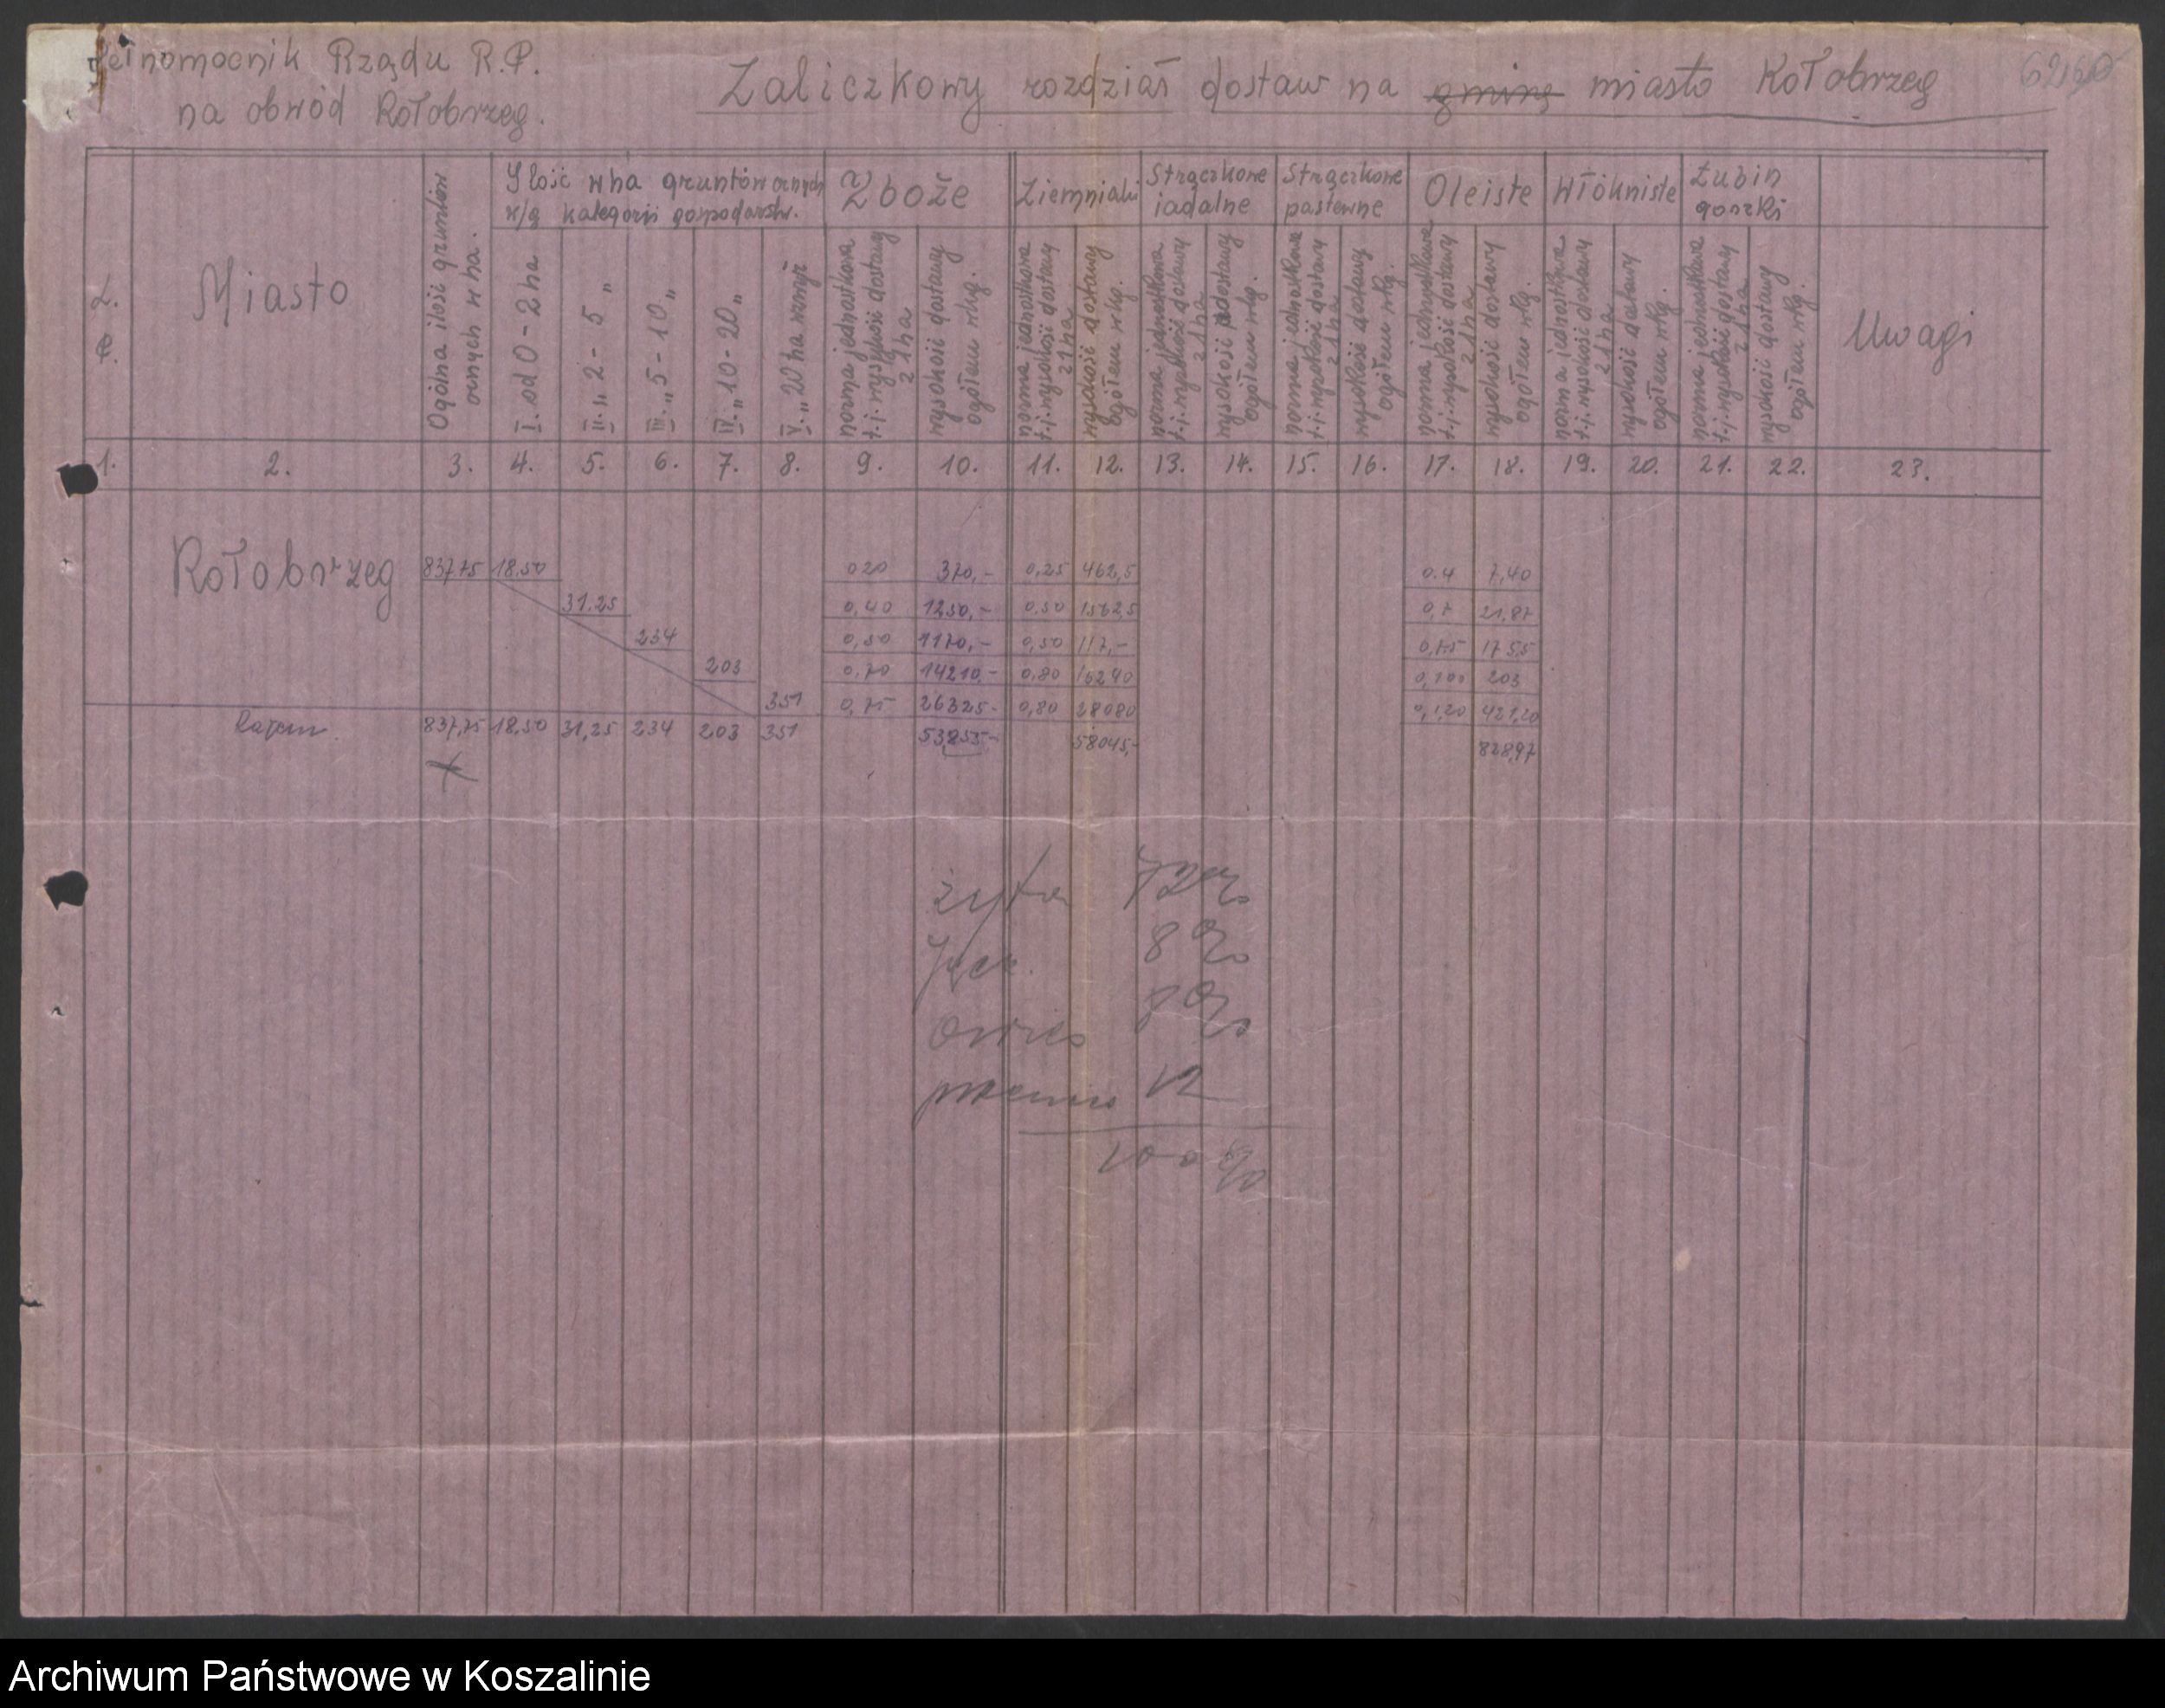 Pełnomocnik Rządu R.P.
na obwód Kołobrzeg.
Zaliczkowy rozdział dostaw na gminę miasto Kołobrzeg
L. P.
Miasto
Ogólna ilość gruntów ornych w ha.
Ilość w ha gruntów ornych
w/g kategorii gospodarstw.
I. od 0 - 2 ha
II. " 2 - 5 "
III. " 5 - 10 "
IV. " 10 - 20 "
V. " 20 ha wzwyż
Zboże
norma jednostkowa t.j. wysokość dostawy z 1 ha
wysokość dostawy ogółem w kg.
Ziemniaki
norma jednostkowa t.j. wysokość dostawy z 1 ha
wysokość dostawy ogółem w kg.
Strączkowe jadalne
norma jednostkowa t.j. wysokość dostawy z 1 ha
wysokość dostawy ogółem w kg.
Strączkowe pastewne
norma jednostkowa t.j. wysokość dostawy z 1 ha
wysokość dostawy ogółem w kg.
Oleiste
norma jednostkowa t.j. wysokość dostawy z 1 ha
wysokość dostawy ogółem w kg.
Włókniste
norma jednostkowa t.j. wysokość dostawy z 1 ha
wysokość dostawy ogółem w kg.
Łubin gorzki
norma jednostkowa t.j. wysokość dostawy z 1 ha
wysokość dostawy ogółem w kg.
Uwagi
1. 2. 3. 4. 5. 6. 7. 8. 9. 10. 11. 12. 13. 14. 15. 16. 17. 18. 19. 20. 21. 22. 23.
Kołobrzeg 837.75 18.50 020 370,- 0,25 462,5 0.4 7,40
31.25 0,40 1250,- 0,50 15625 0,7 21,87
234 0,50 1170,- 0,50 117,- 0,75 175,5
203 0,70 14210,- 0,80 16240 0,100 203
351 0,75 26325- 0,80 28080 0,120 421,20
Razem. 837,75 18.50 31,25 234 203 351 53255,- 58045,- 828,97
żyto 72%
Jęcz. 8%
owies 8%
pszenica 12
100%
Archiwum Państwowe w Koszalinie